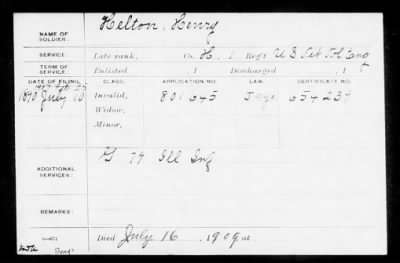 NAME OF SOLDIER: Helton, Henry
SERVICE: Late rank, Co. H, 1 Reg't U S Vet Vol Eng
TERM OF SERVICE: Enlisted , 1 Discharged , 1
DATE OF FILING. CLASS. APPLICATION NO. LAW. CERTIFICATE NO.
1890 July Invalid, 801645 654237
Widow,
Minor,
ADDITIONAL SERVICES: G 79 Ill Inf
REMARKS:
Died July 16, 1909, at